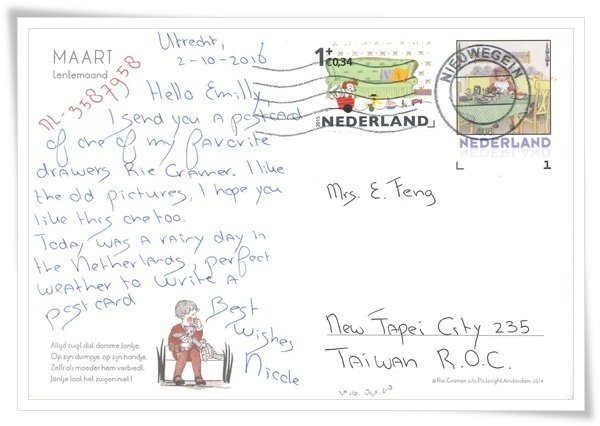 MAART
Lentemaand
NL-3587958
Utrecht,
2-10-2016
Hello Emilly,
I send you a postcard
of one of my favorite
drawers Rie Cramer. I like
the old pictures, I hope you
like this one too.
Today was a rainy day in
the Netherlands, perfect
weather to write a
postcard
Best
Wishes
Nicole
Altijd zuigt dat domme Jantje,
Op zijn duimpje, op zijn handje.
Zelfs als moeder hem verbiedt,
Jantje laat het zuigen niet!
1+
€0,34
2015
NEDERLAND
NIEUWEGEIN
NEDERLAND
1
Mrs. E. Feng
New Tapei City 235
TAIWAN R.O.C.
© Rie Cramer, c/o Pictoright Amsterdam 2014